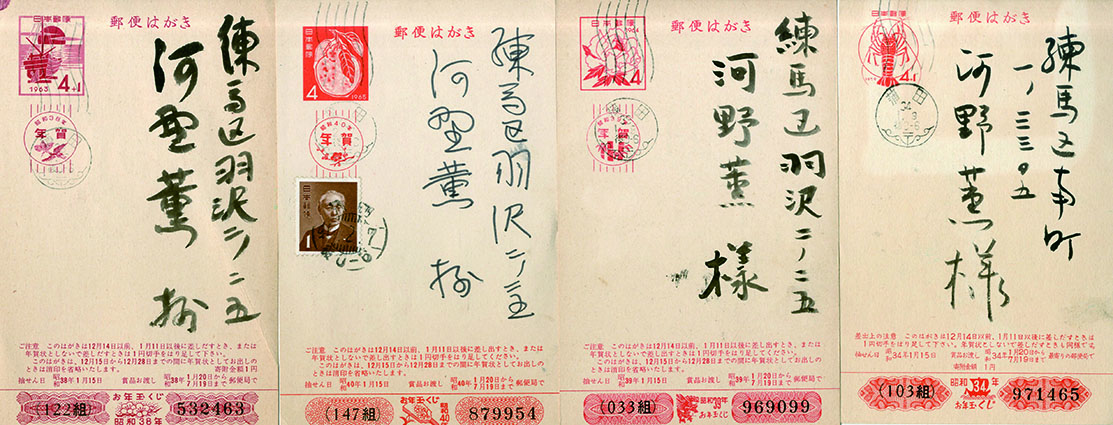 日本郵便
郵便はがき
4+1
1963
昭和38年
年賀
練馬区羽沢二ノ二五
河野薫
ご注意 このはがきは12月14日以前、1月11日以後に差しだすとき、または
年賀状としないで差しだすときは1円切手をはり足して下さい。
このはがきは、12月15日から12月28日までの間に年賀状としてお出しの
ときは消印を省略いたします。 寄附金額1円
抽せん日 昭和38年1月15日 賞品お渡し 昭和38年1月20日から7月19日まで 郵便局で
(122組)
お年玉くじ
昭和38年
532463
日本郵便
郵便はがき
4
1965
昭和40年
年賀
日本郵便
1
練馬区羽沢二ノ二五
河野薫
ご注意 このはがきは12月14日以前、1月11日以後に差し出すとき、または
年賀状としないで差し出すときは1円切手をはり足してください。
このはがきは、12月15日から12月28日までの間に年賀状としてお出しの
ときは消印を省略いたします。
抽せん日 昭和40年1月15日 賞品お渡し 昭和40年1月20日から7月19日まで 郵便局で
(147組)
お年玉くじ
昭和40
879954
日本郵便
郵便はがき
1964
4+1
年賀
練馬区羽沢二ノ二五
河野薫 様
ご注意 このはがきは12月14日以前、1月11日以後に差しだすとき、または
年賀状としないで差しだすときは1円切手をはり足して下さい。
このはがきは、12月15日から12月28日までの間に年賀状としてお出しの
ときは消印を省略いたします。 寄附金額1円
抽せん日 昭和39年1月15日 賞品お渡し 昭和39年1月20日から7月19日まで 郵便局で
(033組)
昭和39年
お年玉くじ
969099
日本郵便
郵便はがき
4+1
練馬区南町
一ノ三三〇五
河野薫様
差出上の注意 このはがきは12月14日以前、1月11日以後に差しだすときは
1円切手をはり足して下さい。年賀状としないで差しだすときも同様です。
抽せん日 昭和34年1月15日 賞品お渡し 昭和34年1月20日から7月19日まで 最寄りの郵便局で
寄附金額 1円
(103組)
昭和34年
お年玉くじ
971465